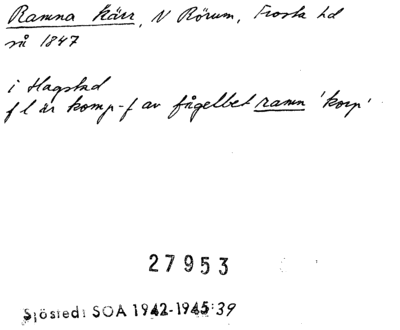 Ramna kärr, N Rörum, Frosta hd
så 1847
i Hagstad
f l är komp-f av fågelbet ramn 'korp'
27953
Sjöstedt SOA 1942-1945:39